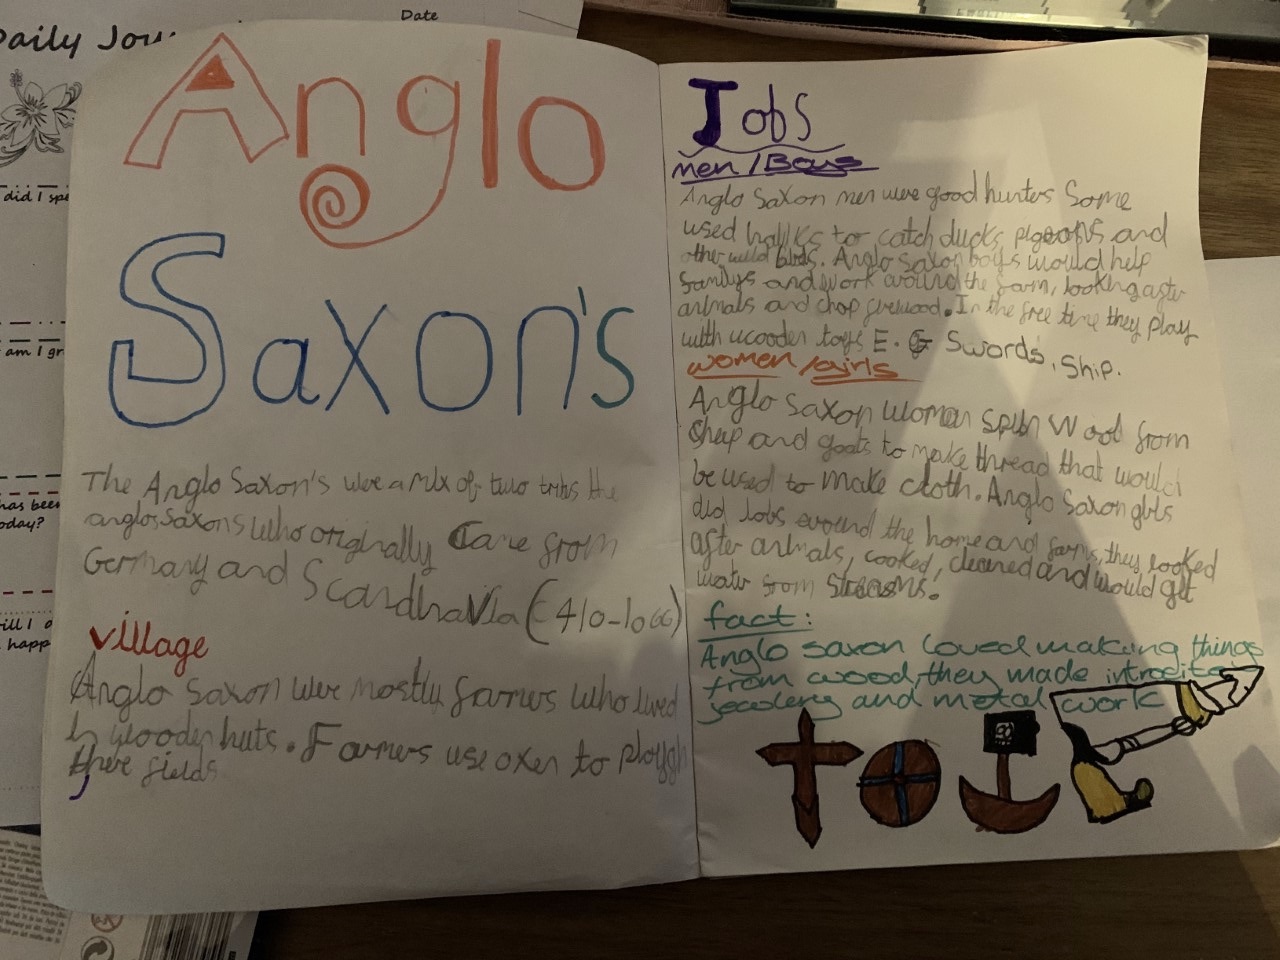 Date
Daily Jou
did I spe
am I gr
has been
oday?
ill I
happ
Anglo
Saxon's
The Anglo Saxon's were a mix of two tribs the
anglo, Saxons who originally Came from
Germany and Scandinavia (410-1066)
village
Anglo saxon were mostly farmers who lived
in wooden huts. Farmers use oxen to plough
there fields
Jobs
men/Boys
Anglo Saxon men were good hunters Some
used hawks to catch ducks, pigeons and
other wild birds. Anglo saxon boys would help
familys and work around the farm, looking after
animals and chop firewood. In the free time they play
with wooden toys E.G Swords, Ship.
women/girls
Anglo saxon woman spun Wool from
Sheep and goats to make thread that would
be used to make cloth. Anglo Saxon girls
did Jobs around the home and farm, they looked
after animals, cooked, cleaned and would get
water from streams.
fact:
Anglo saxon loved making things
from wood, they made
jewlery and metal work